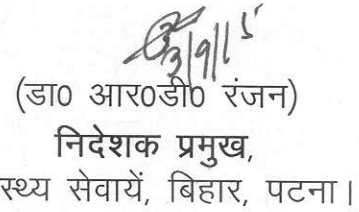 3/9/15
(डा० आर०डी० रंजन)
निदेशक प्रमुख,
स्थ्य सेवायें, बिहार, पटना।